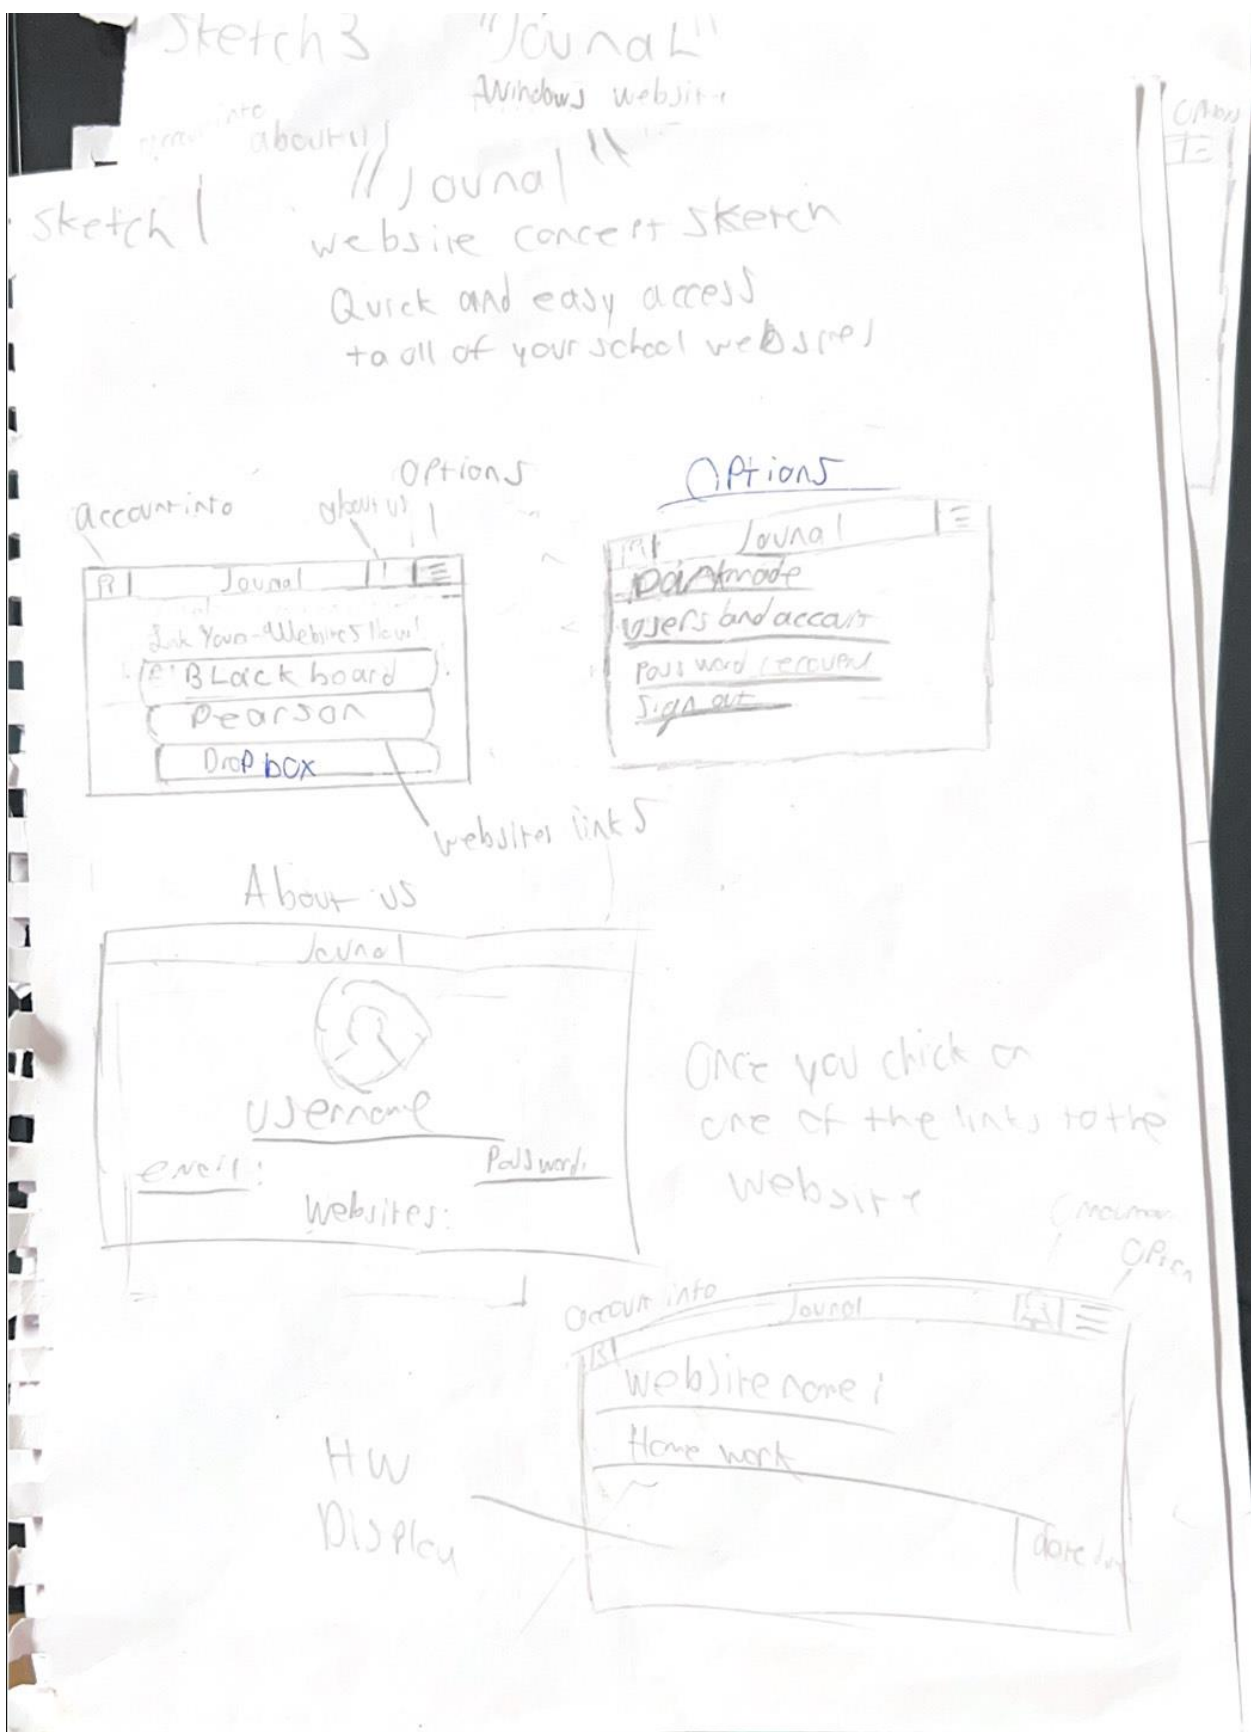 Sketch 3 "JounaL"
Windows website
about us
Sketch 1
"Jounal"
website concept sketch
Quick and easy access
to all of your school websites
account info
about us
options
Jounal
Link Your Websites Now!
BLackboard
Pearson
Dropbox
websites links
Options
Jounal
Darkmode
Users and account
Password recovery
Sign out
About us
Jounal
Username
email:
Password:
Websites:
Once you chick on
one of the links to the
website
account info
Option
Jounal
Website name:
Home work
date due
HW
Display